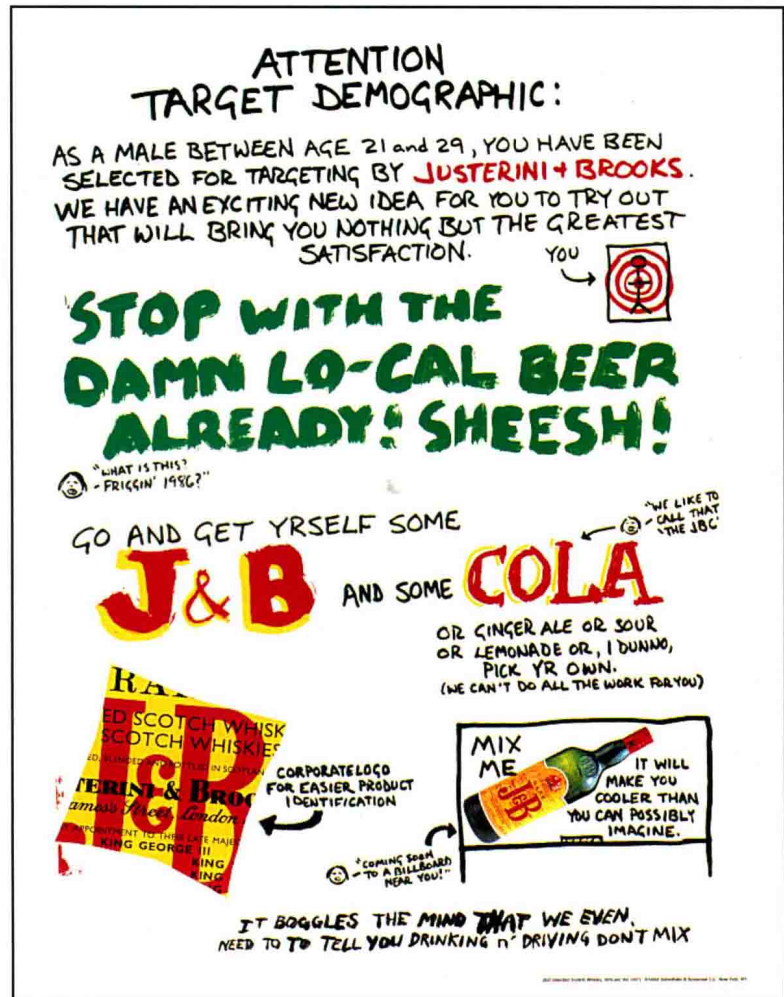 ATTENTION
TARGET DEMOGRAPHIC:
AS A MALE BETWEEN AGE 21 and 29, YOU HAVE BEEN
SELECTED FOR TARGETING BY JUSTERINI + BROOKS.
WE HAVE AN EXCITING NEW IDEA FOR YOU TO TRY OUT
THAT WILL BRING YOU NOTHING BUT THE GREATEST
SATISFACTION.
YOU
STOP WITH THE
DAMN LO-CAL BEER
ALREADY! SHEESH!
"WHAT IS THIS?
- FRIGGIN' 1986?"
GO AND GET YRSELF SOME
"WE LIKE TO
- CALL THAT
'THE JBC'
J&B AND SOME COLA
OR GINGER ALE OR SOUR
OR LEMONADE OR, I DUNNO,
PICK YR OWN.
(WE CAN'T DO ALL THE WORK FOR YOU)
RA
ED SCOTCH WHISK
SCOTCH WHISKIES
ED, BLENDED AND BOTTLED IN SCOTLAN
J&B
TERINI & BROO
James's Street, London
APPOINTMENT TO THEIR LATE MAJES
KING GEORGE III
KING
KING
CORPORATE LOGO
FOR EASIER PRODUCT
IDENTIFICATION
MIX
ME
J&B
IT WILL
MAKE YOU
COOLER THAN
YOU CAN POSSIBLY
IMAGINE.
"COMING SOON
- TO A BILLBOARD
NEAR YOU!"
IT BOGGLES THE MIND THAT WE EVEN.
NEED TO TO TELL YOU DRINKING n' DRIVING DON'T MIX